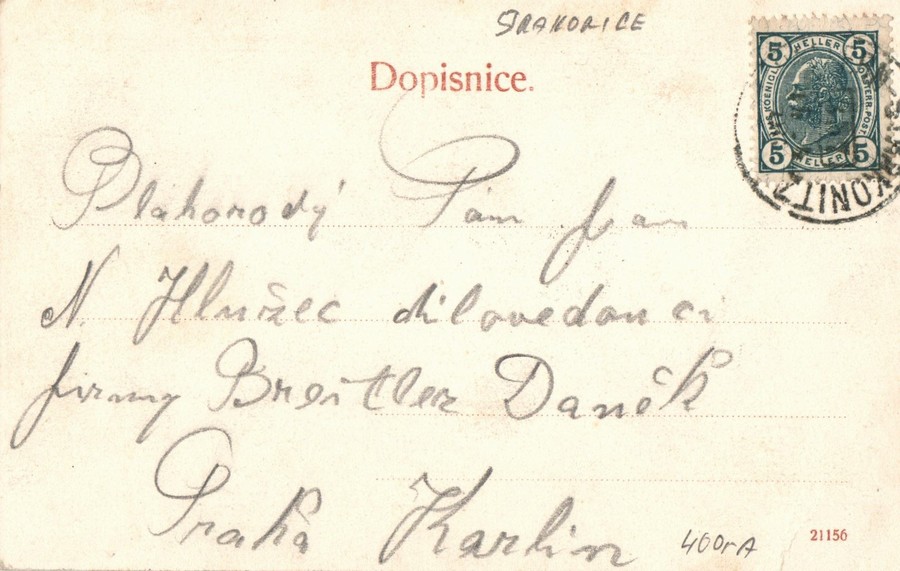 STRAKONICE
Dopisnice.
5 HELLER 5
5 HELLER 5
KONITZ
Blahorodý Pán Jan
N. Hlužec dílovedoucí
firmy Breitler Daněk
Praha
Karlin
400rA
21156